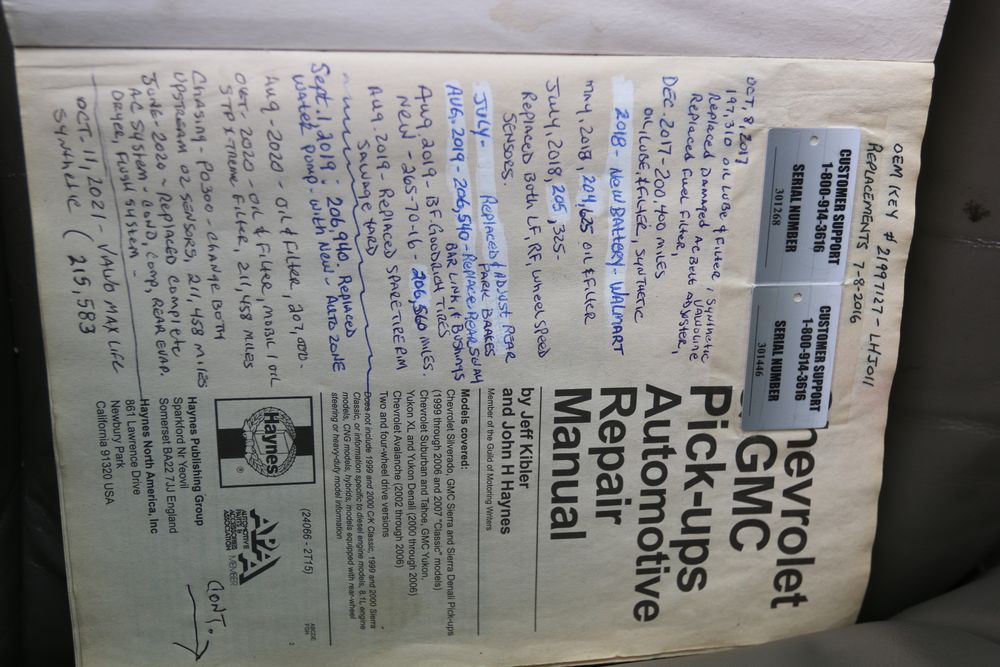 OEM KEY # 21997127 - LHJ011
REPLACEMENTS 7-8-2016
CUSTOMER SUPPORT
1-800-914-3616
SERIAL NUMBER
301268
CUSTOMER SUPPORT
1-800-914-3616
SERIAL NUMBER
301446
OCT, 8, 2017
197,310 OIL LUBE & Filter, Synthetic
Replaced Damaged AC Belt adjuster,
Replaced Fuel Filter,
DEC. 2017 - 200,400 MILES
OIL LUBE, & FILTER, SYNTHETIC
2018 - NEW BATTERY - WALMART
may, 2018, 204,625 OIL & Filter
JULY, 2018, 205,325 -
Replaced Both LF, RF, Wheel Speed
SENSORS.
JULY - Replaced & ADJUST REAR
PARK BRAKES
AUG, 2019 - 206,540 - Replace Rear Sway
BAR LINK & BUSHINGS
Aug 2019 - BF Goodrich TIRES
NEW - 265-70-16 - 206,560 miles.
Aug. 2019 - Replaced SPARE TIRE RIM
SALVAGE YARD
Sept. 1 2019. 206,940. Replaced
water Pump - with New - AUTO ZONE
Aug - 2020 - OIL & FILTER, 207,000 -
OCT. 2020 - OIL & FILTER, MOBIL 1 OIL
STP XTREME FILTER, 211,458 MILES
Chasing - P0300 - CHANGE BOTH
UPSTREAM O2 SENSORS, 211,458 MILES
JUNE - 2020 - Replaced Complete
AC SYSTEM, COND, COMP, REAR EVAP.
DRYER, FLUSH SYSTEM -
OCT. 11, 2021 - VALVO MAX LIFE
SYNTHETIC ( 215,583
hevrolet
GMC
Pick-ups
Automotive
Repair
Manual
by Jeff Kibler
and John H Haynes
Member of the Guild of Motoring Writers
Models covered:
Chevrolet Silverado, GMC Sierra and Sierra Denali Pick-ups
(1999 through 2006 and 2007 "Classic" models)
Chevrolet Suburban and Tahoe, GMC Yukon,
Yukon XL and Yukon Denali (2000 through 2006)
Chevrolet Avalanche (2002 through 2006)
Two and four-wheel drive versions
Does not include 1999 and 2000 C/K Classic, 1999 and 2000 Sierra
Classic, or information specific to diesel engine models, 8.1L engine
models, CNG models, hybrids, models equipped with rear-wheel
steering or heavy-duty model information
Haynes
®
APA
AUTOMOTIVE
PARTS &
ACCESSORIES
ASSOCIATION MEMBER
(24066 - 2T15)
ABCDE
FGH
2
Haynes Publishing Group
Sparkford Nr Yeovil
Somerset BA22 7JJ England
Haynes North America, Inc
861 Lawrence Drive
Newbury Park
California 91320 USA
CONT.